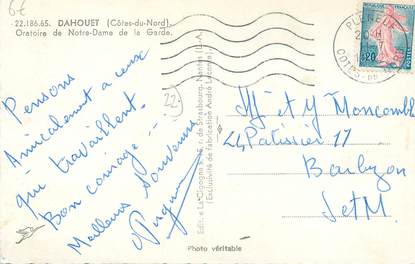 6€
22.186.65. DAHOUET (Côtes-du-Nord).
Oratoire de Notre-Dame de la Garde.
PLENEUF
20
CÔTES-DU-
0,20
POSTES
22-
Pensons
Amicalement à ceux
qui travaillent.
Bon courage...
Meilleurs Souvenirs
Édit. « La Cigogne », de Strasbourg, Nantes (L.-A.)
Exclusivité de fabrication André
Mr et Mme Moncomble
Patissier
Barbizon
S et M.
Photo véritable